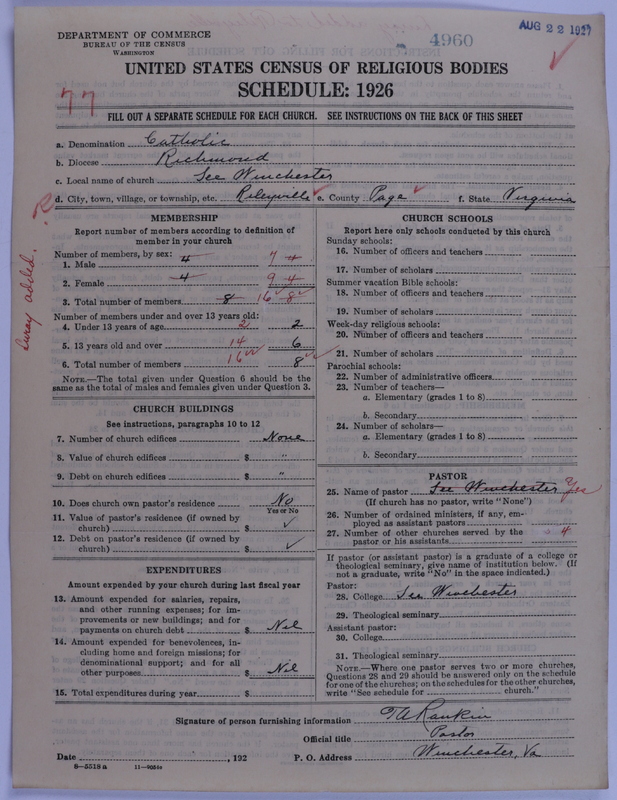 DEPARTMENT OF COMMERCE
BUREAU OF THE CENSUS
WASHINGTON
4960
AUG 22 1927
UNITED STATES CENSUS OF RELIGIOUS BODIES
SCHEDULE: 1926
77
FILL OUT A SEPARATE SCHEDULE FOR EACH CHURCH. SEE INSTRUCTIONS ON THE BACK OF THIS SHEET
a. Denomination Catholic
b. Diocese Richmond
c. Local name of church See Winchester
d. City, town, village, or township, etc. Rileyville e. County Page f. State Virginia
Luray added.
MEMBERSHIP
Report number of members according to definition of
member in your church
Number of members, by sex:
1. Male 4 7 4
2. Female 4 9 4
3. Total number of members 8 16 8
Number of members under and over 13 years old:
4. Under 13 years of age 2 2
5. 13 years old and over 14 6
6. Total number of members 16 8
NOTE.—The total given under Question 6 should be
same as the total of males and females given under Question 3.
CHURCH BUILDINGS
See instructions, paragraphs 10 to 12
7. Number of church edifices None
8. Value of church edifices $ "
9. Debt on church edifices $ "
10. Does church own pastor's residence No
Yes or No
11. Value of pastor's residence (if owned by
church) $ ✓
12. Debt on pastor's residence (if owned by
church) $ ✓
EXPENDITURES
Amount expended by your church during last fiscal year
13. Amount expended for salaries, repairs,
and other running expenses; for im-
provements or new buildings; and for
payments on church debt $ Nil
14. Amount expended for benevolences, in-
cluding home and foreign missions; for
denominational support; and for all
other purposes $ Nil
15. Total expenditures during year $
CHURCH SCHOOLS
Report here only schools conducted by this church
Sunday schools:
16. Number of officers and teachers
17. Number of scholars
Summer vacation Bible schools:
18. Number of officers and teachers
19. Number of scholars
Week-day religious schools:
20. Number of officers and teachers
21. Number of scholars
Parochial schools:
22. Number of administrative officers
23. Number of teachers—
a. Elementary (grades 1 to 8)
b. Secondary
24. Number of scholars—
a. Elementary (grades 1 to 8)
b. Secondary
PASTOR
25. Name of pastor See Winchester Yes
(If church has no pastor, write "None")
26. Number of ordained ministers, if any, em-
ployed as assistant pastors
27. Number of other churches served by the
pastor or his assistants 4
If pastor (or assistant pastor) is a graduate of a college or
theological seminary, give name of institution below. (If
not a graduate, write "No" in the space indicated.)
Pastor:
28. College See Winchester
29. Theological seminary
Assistant pastor:
30. College
31. Theological seminary
NOTE.—Where one pastor serves two or more churches,
Questions 28 and 29 should be answered only on the schedule
for one of the churches; on the schedules for the other churches,
write "See schedule for church."
Signature of person furnishing information T A Rankin
Official title Pastor
Date , 192 P. O. Address Winchester, Va
8—5518 a 11—9054